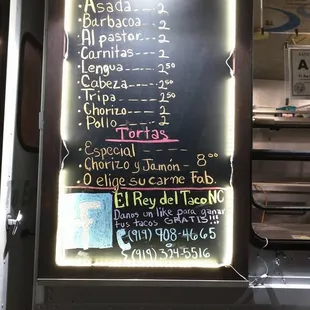 • Asada --- 2
• Barbacoa --- 2
• Al pastor --- 2
• Carnitas --- 2
• Lengua --- 2⁵⁰
• Cabeza --- 2⁵⁰
• Tripa --- 2⁵⁰
• Chorizo --- 2
• Pollo --- 2
Tortas
• Especial
• Chorizo y Jamón - 8⁰⁰
• O elige su carne Fab.
El Rey del Taco NC
Danos un like para ganar
tus tacos GRATIS!!!
(919) 908-4665
(919) 324-5516
f
A